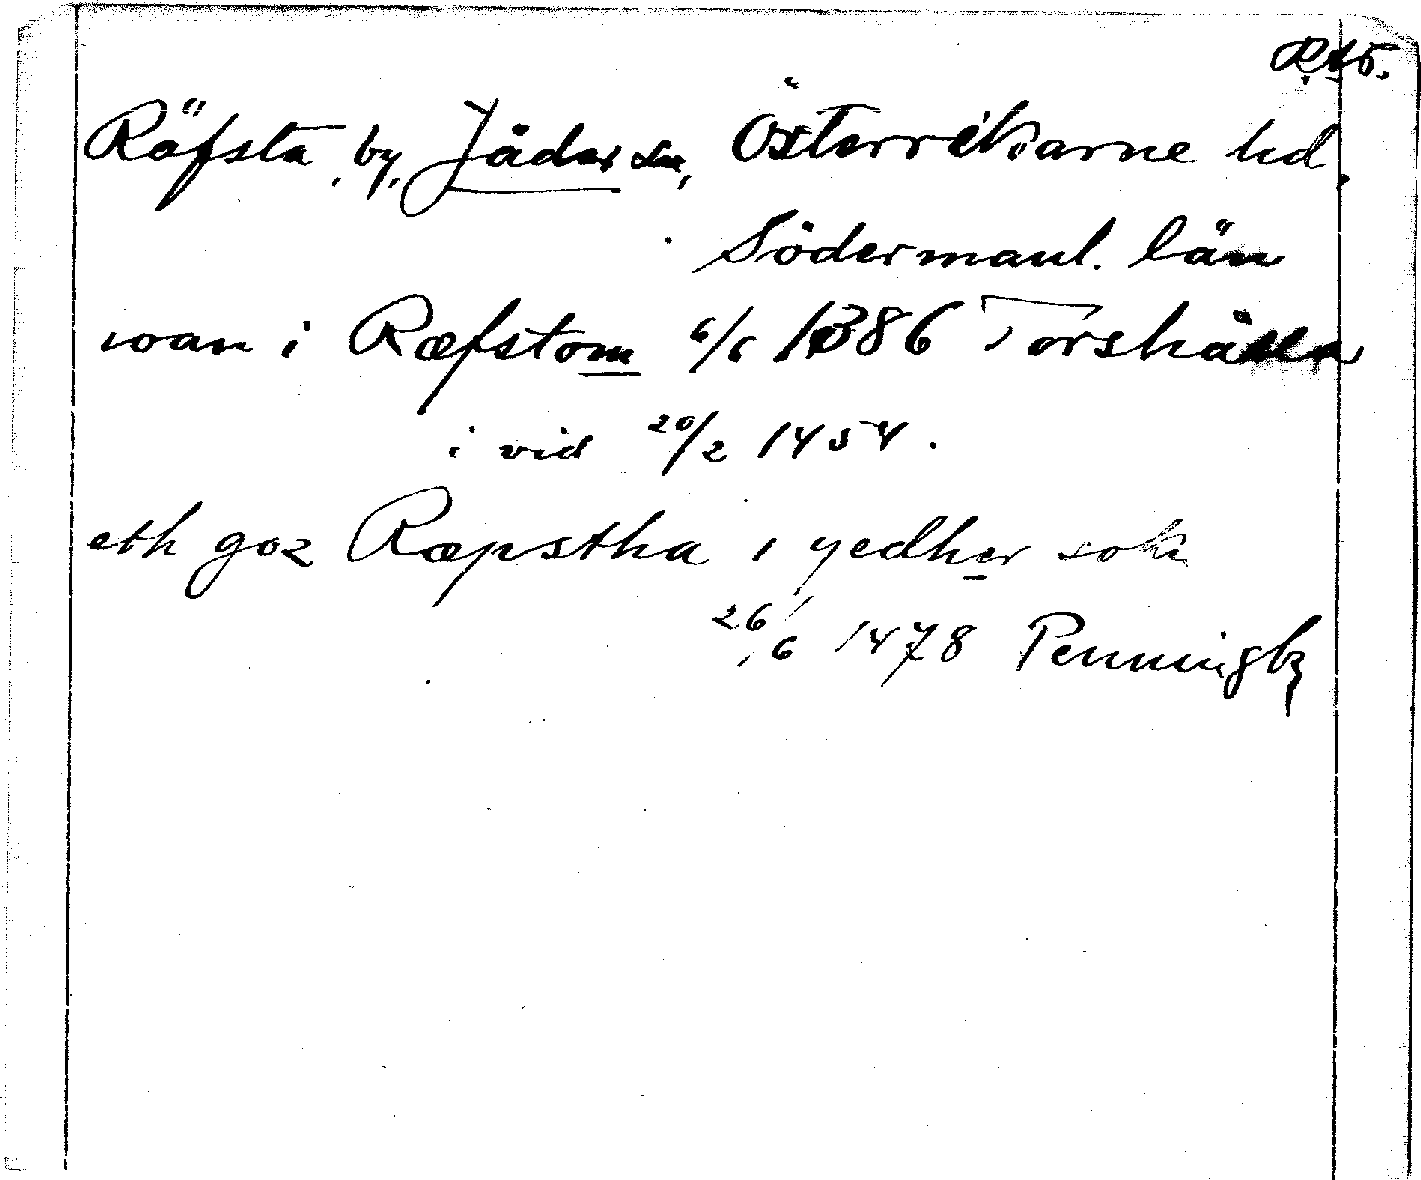 Räfsta, by, Jäder sn, Österrekarne hd.
Södermanl. län
ioan i Ræfstom 6/6 1386 Torshälla
i vid 20/2 1454.
eth goz Ræpstha i yedher sokn
26/6 1478 Penningby